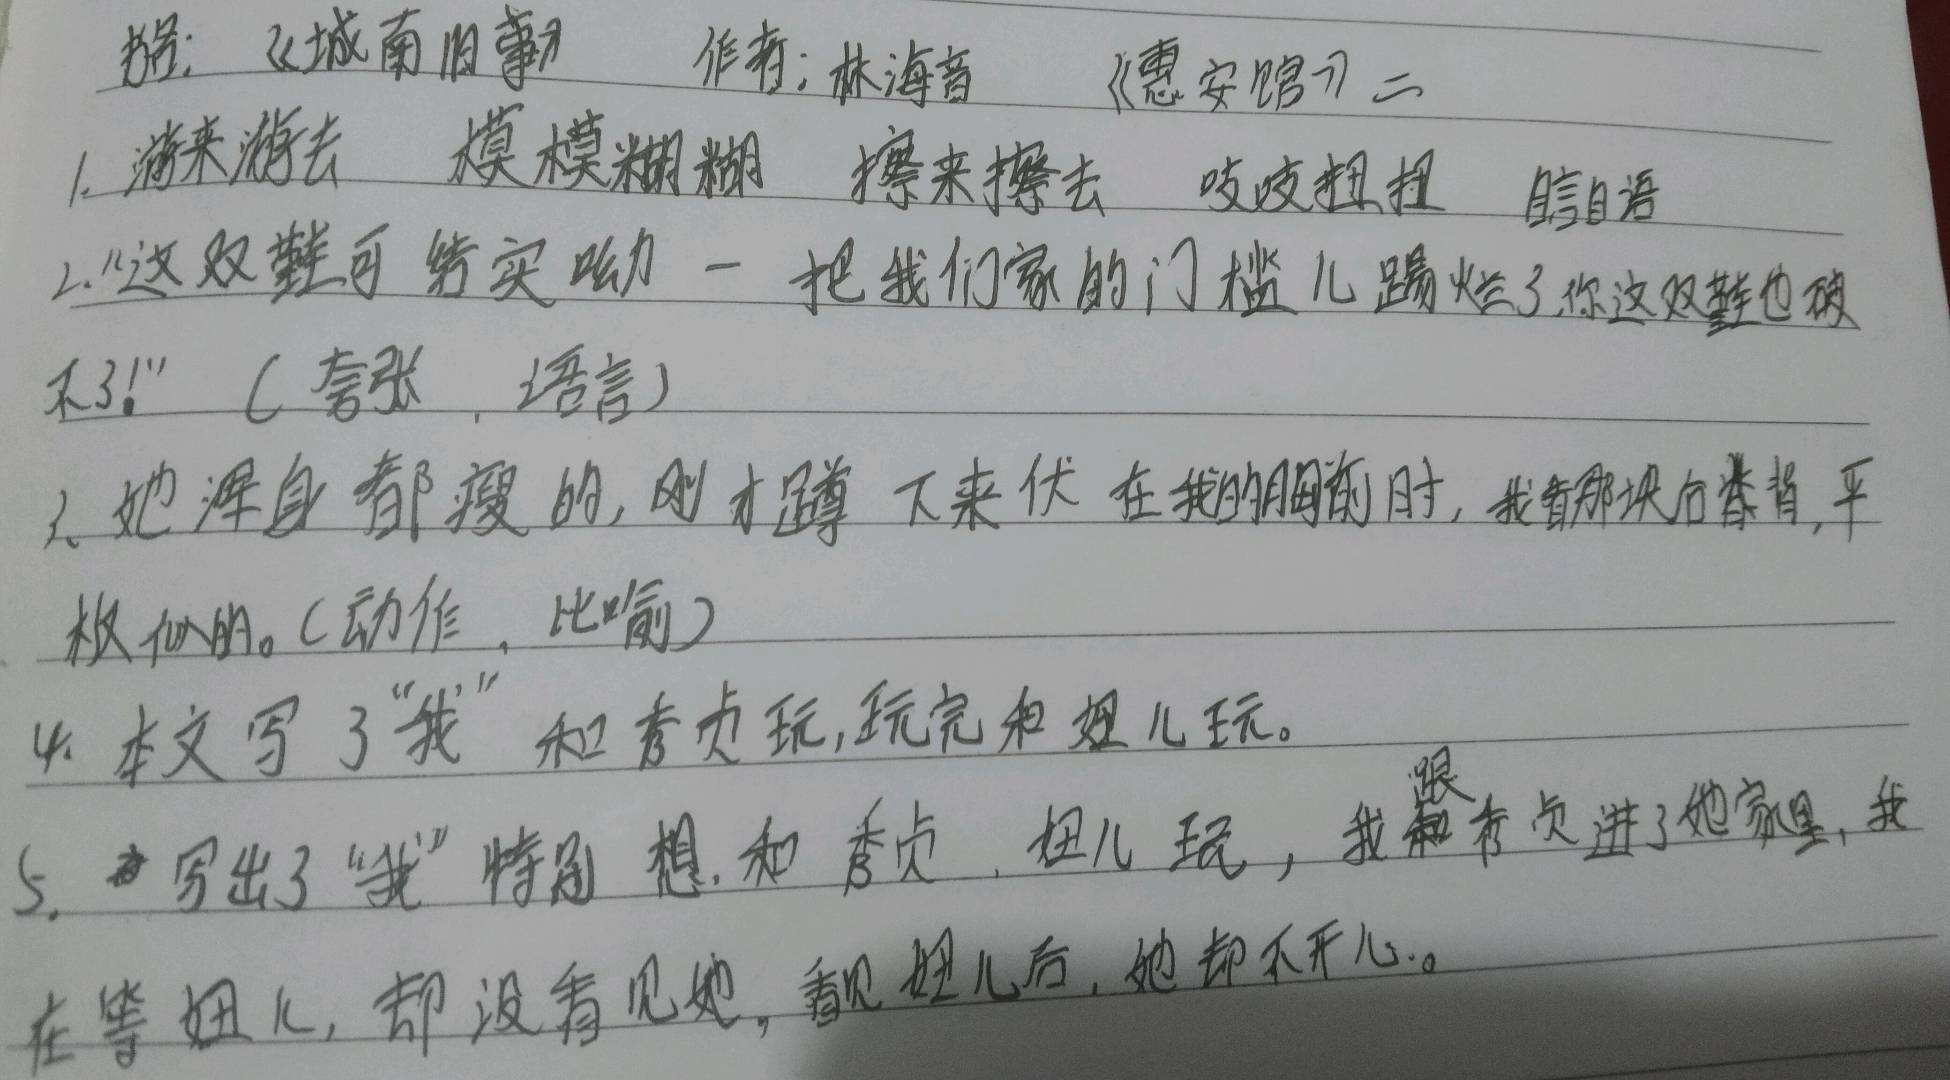 书名:《城南旧事》 作者:林海音 《惠安馆》二
1. 游来游去 模模糊糊 擦来擦去 吱吱扭扭 自言自语
2. “这双鞋可结实呦一把我们家的门槛儿踢烂了,你这双鞋也破
不了!”(夸张、语言)
3、她浑身都瘦的,刚才蹲下来伏在我的胸前时,我看那块后脊背,平
板似的。(动作、比喻)
4. 本文写了“我”和秀贞玩,玩完和妞儿玩。
5. 写出了“我”特别想、和秀贞、妞儿玩,我跟秀贞进了她家里,我
在等妞儿,却没看见她,看见妞儿后,她却不开心。